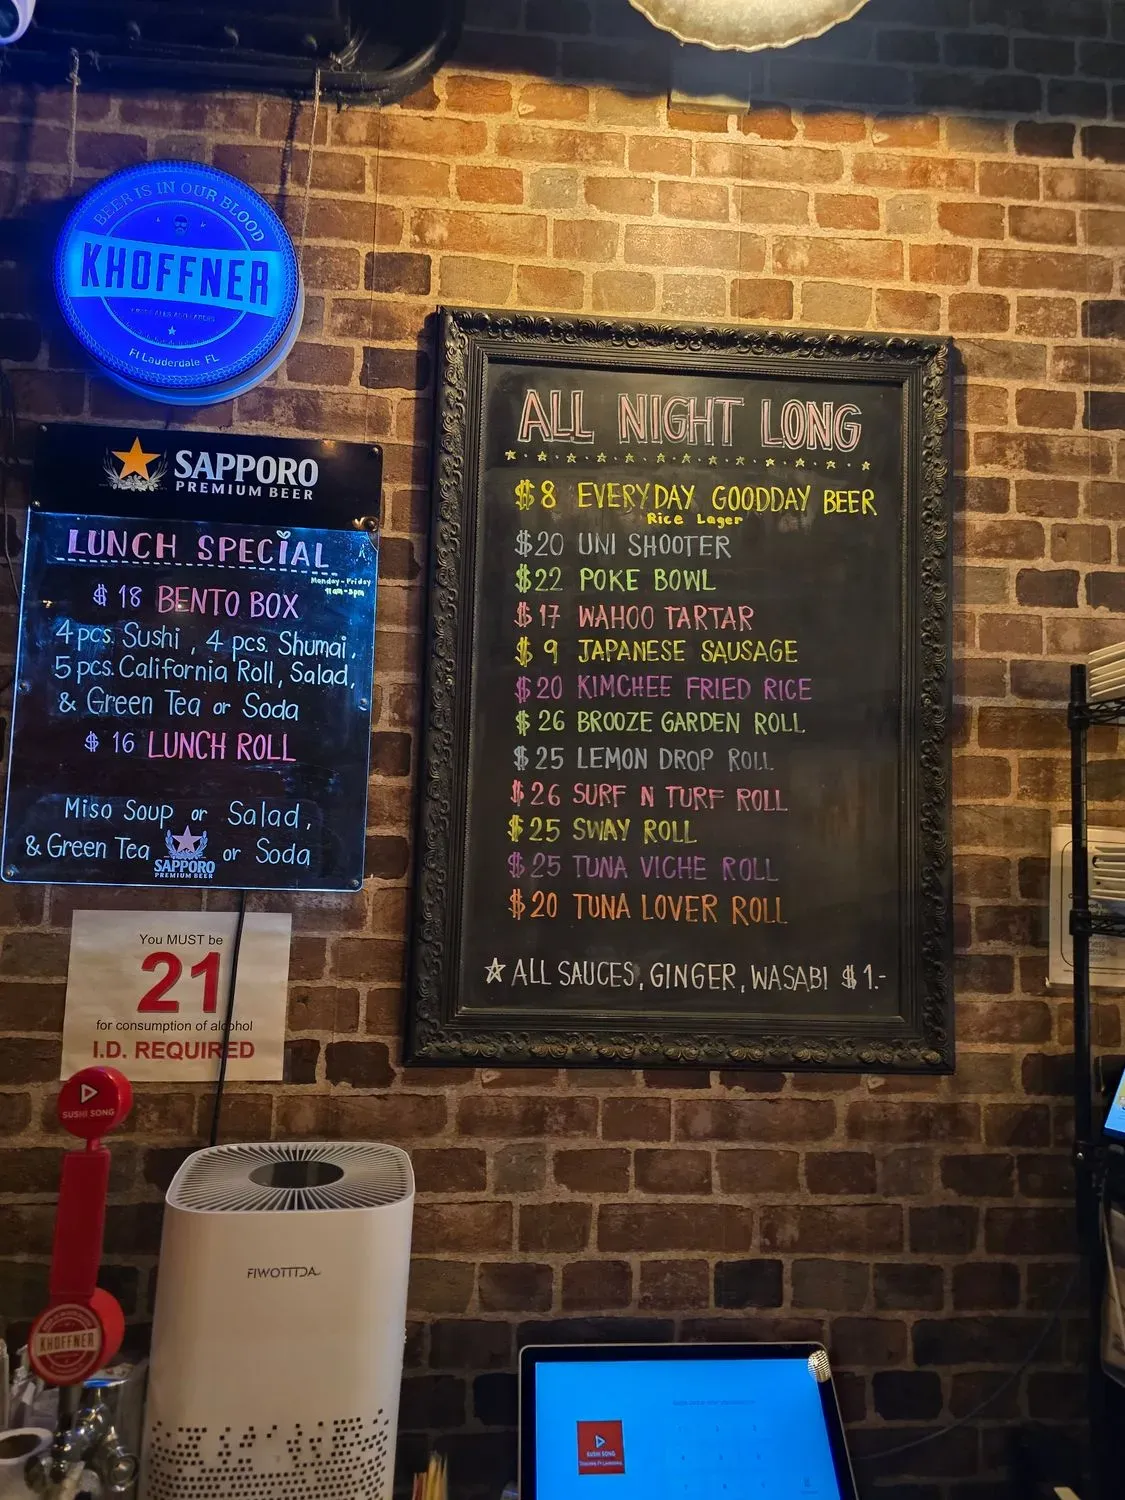 BEER IS IN OUR BLOOD
KHOFFNER
Ft Lauderdale FL
SAPPORO
PREMIUM BEER
LUNCH SPECIAL
Monday-Friday
11am-3pm
$ 18 BENTO BOX
4 pcs. Sushi, 4 pcs. Shumai,
5 pcs. California Roll, Salad,
& Green Tea or Soda
$ 16 LUNCH ROLL
Miso Soup or Salad,
& Green Tea or Soda
SAPPORO
PREMIUM BEER
You MUST be
21
for consumption of alcohol
I.D. REQUIRED
ALL NIGHT LONG
$8 EVERYDAY GOODDAY BEER
Rice Lager
$20 UNI SHOOTER
$22 POKE BOWL
$17 WAHOO TARTAR
$ 9 JAPANESE SAUSAGE
$20 KIMCHEE FRIED RICE
$26 BROOZE GARDEN ROLL
$25 LEMON DROP ROLL
$26 SURF N TURF ROLL
$25 SWAY ROLL
$25 TUNA VICHE ROLL
$20 TUNA LOVER ROLL
☆ ALL SAUCES, GINGER, WASABI $1.-
SUSHI SONG
KHOFFNER
FIWOTTTDA
SUSHI SONG